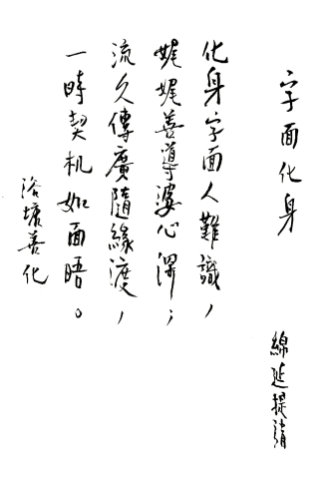 字面化身
綿延提請
化身字面人難識，
娓娓善導婆心渥；
流久傳廣隨緣渡，
一時契机如面晤。
浴壚善化